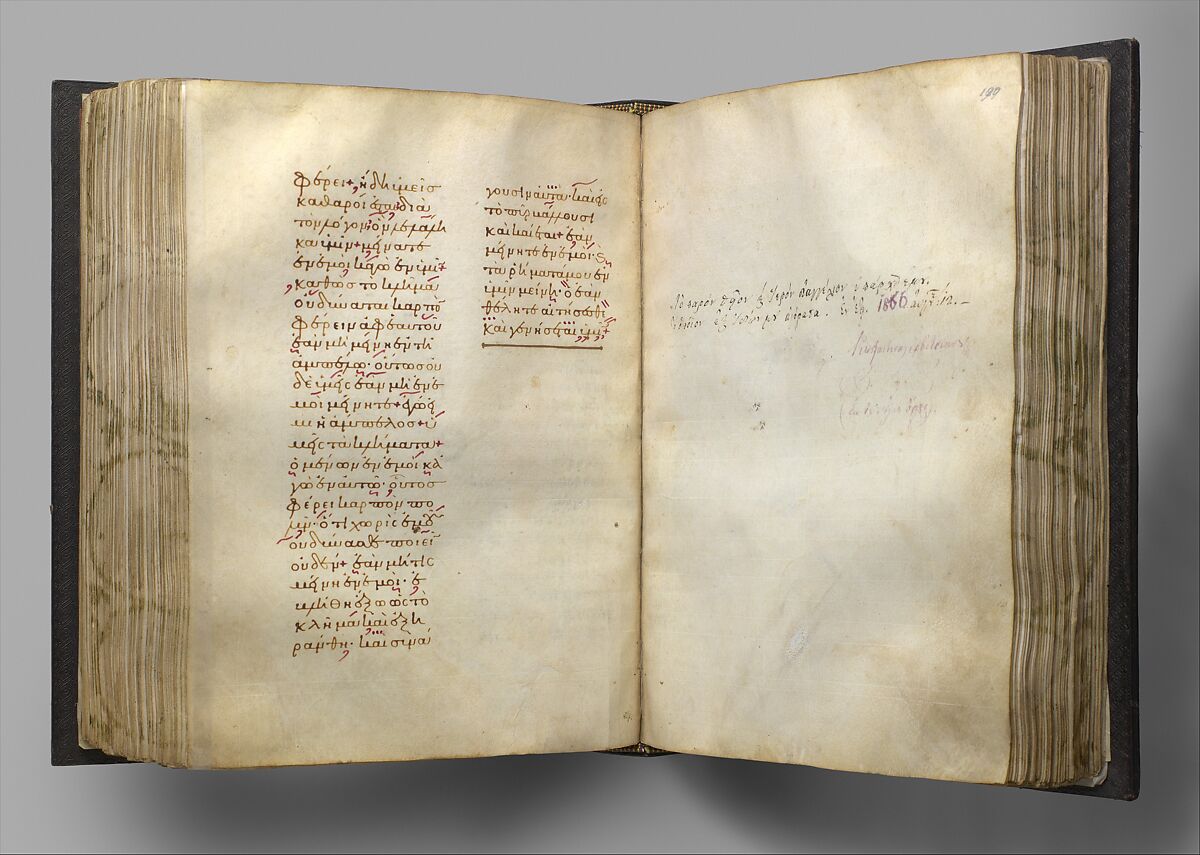 φέρει + ἤδη ὑμεῖς
καθαροί ἐσται διὰ
τὸν λόγον ὃν λελάλη
κα ὑμῖν + μείνατε
ἐν ἐμοὶ κἀγὼ ἐν ὑμῖν +
καθὼς τὸ κλῆμα
οὐ δύναται καρπὸ
φέρειν ἀφ' ἑαυτοῦ
ἐὰν μὴ μένη ἐν τῆ
ἀμπέλω· οὕτως οὐ
δὲ ὑμεῖς ἐὰν μὴ ἐν ἐ
μοὶ μένητε + ἐγώ εἰ
μι ἡ ἄμπελος + ὑ
μεῖς τὰ κλήματα +
ὁ μένων ἐν ἐμοὶ κα
γὼ ἐν αὐτῶ· οὗτος
φέρει καρπὸν πο
λύν· ὅτι χωρὶς ἐμοῦ
οὐ δύνασθε ποιεῖ
οὐδέν + ἐὰν μή τις
μένη ἐν ἐμοί· ἐ
βλήθη ἔξω ὡς τὸ
κλῆμα καὶ ἐξη
ράνθη· καὶ συνά
γουσιν αὐτὰ· καὶ εἰς
τὸ πῦρ βάλλουσι
καὶ καίεται + ἐὰν
μείνητε ἐν ἐμοί· ϗ
τὰ ῥήματά μου ἐν
ὑμῖν μείνη· ὃ ἐὰν
θέλητε αἰτήσασθε
καὶ γενήσεται ὑμῖν +
199
Τὸ παρὸν θεῖον ϗ ἱερὸν Εὐαγγέλιον
1866 αυγ. 12. –